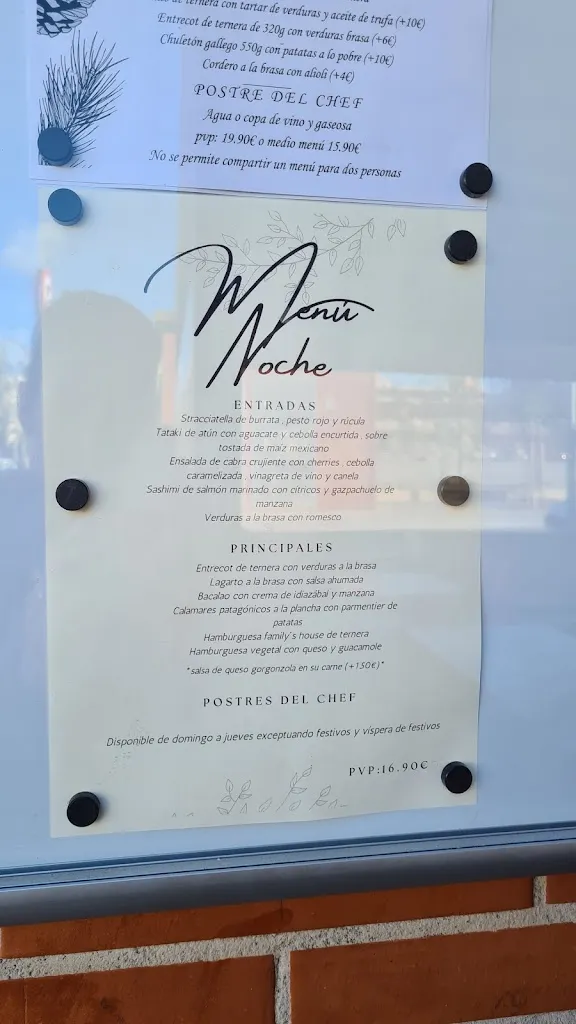 de ternera con tartar de verduras y aceite de trufa (+10€)
Entrecot de ternera de 320g con verduras brasa (+6€)
Chuletón gallego 550g con patatas a lo pobre (+10€)
Cordero a la brasa con alioli (+4€)
POSTRE DEL CHEF
Agua o copa de vino y gaseosa
pvp: 19.90€ o medio menú 15.90€
No se permite compartir un menú para dos personas
Menú
Noche
ENTRADAS
Stracciatella de burrata , pesto rojo y rúcula
Tataki de atún con aguacate y cebolla encurtida , sobre
tostada de maíz mexicano
Ensalada de cabra crujiente con cherries , cebolla
caramelizada , vinagreta de vino y canela
Sashimi de salmón marinado con cítricos y gazpachuelo de
manzana
Verduras a la brasa con romesco
PRINCIPALES
Entrecot de ternera con verduras a la brasa
Lagarto a la brasa con salsa ahumada
Bacalao con crema de idiazábal y manzana
Calamares patagónicos a la plancha con parmentier de
patatas
Hamburguesa family's house de ternera
Hamburguesa vegetal con queso y guacamole
*salsa de queso gorgonzola en su carne (+1.50€)*
POSTRES DEL CHEF
Disponible de domingo a jueves exceptuando festivos y víspera de festivos
PVP:16.90€